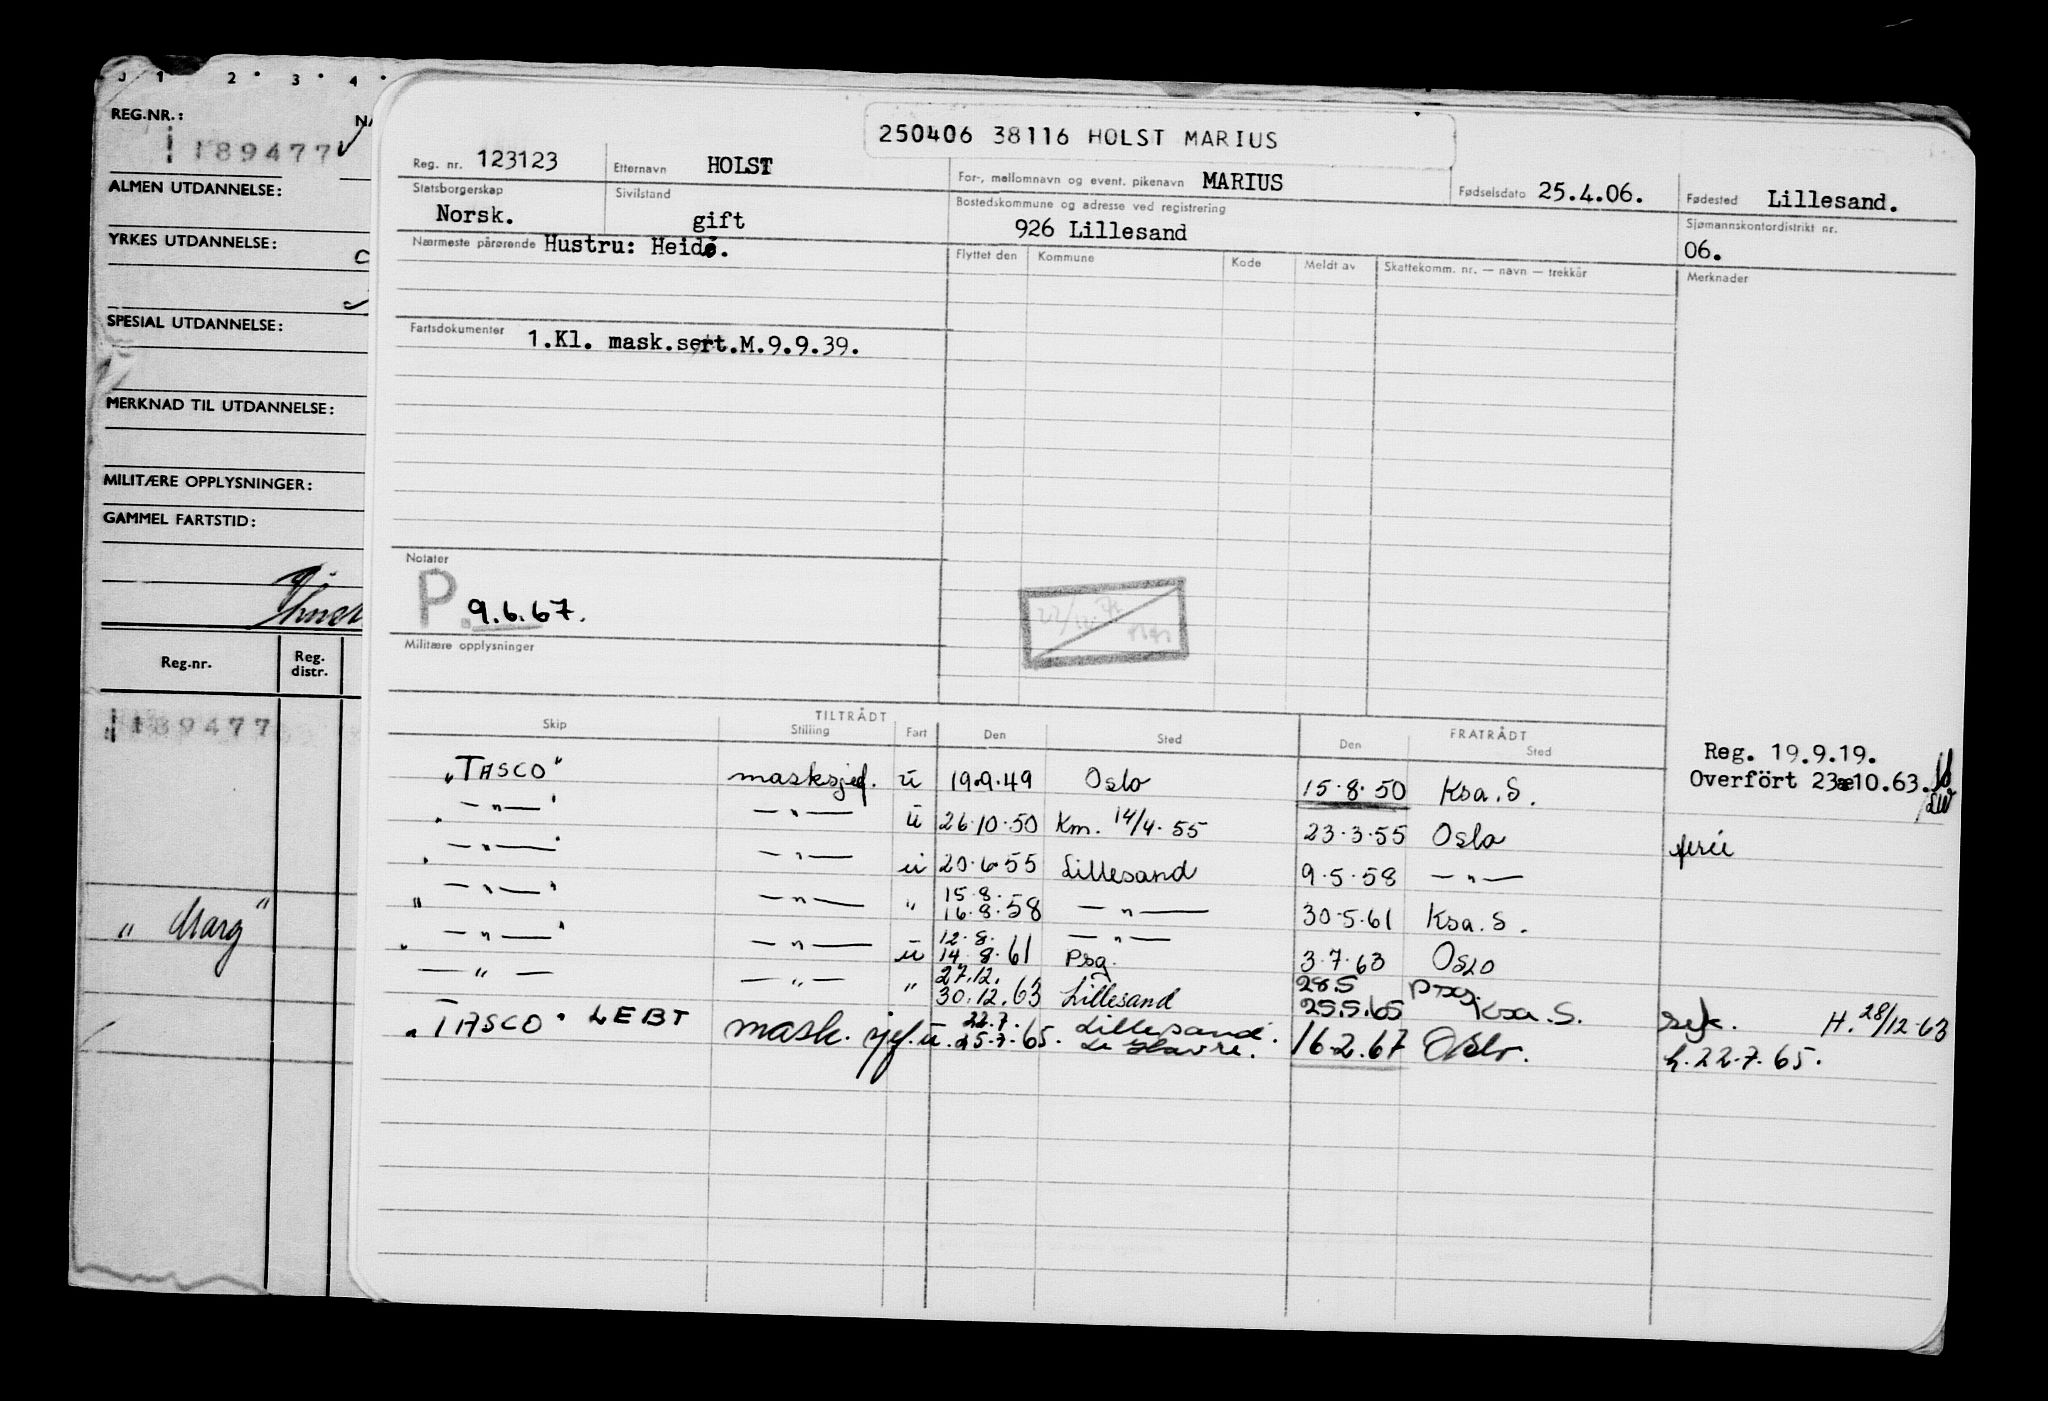 J 1 2 3 4
REG.NR.:
189477
ALMEN UTDANNELSE:
YRKES UTDANNELSE:
SPESIAL UTDANNELSE:
MERKNAD TIL UTDANNELSE:
MILITÆRE OPPLYSNINGER:
GAMMEL FARTSTID:
Reg.nr. Reg. distr.
189477
" Marg "
250406 38116 HOLST MARIUS
Reg. nr. 123123 Etternavn HOLST For-, mellomnavn og event. pikenavn MARIUS Fødselsdato 25.4.06. Fødested Lillesand.
Statsborgerskap Norsk. Sivilstand gift Bostedskommune og adresse ved registrering 926 Lillesand Sjømannskontordistrikt nr. 06.
Nærmeste pårørende Hustru: Heid. Flyttet den Kommune Kode Meldt av Skattekomm. nr. — navn — trekkår Merknader
Fartsdokumenter 1.Kl. mask.sert.M.9.9.39.
Notater
P. 9.6.67.
Militære opplysninger
TILTRÅDT FRATRÅDT
Skip Stilling Fart Den Sted Den Sted
Reg. 19.9.19.
Overført 23.10.63.
"TASCO" masksjef. u 19.9.49 Oslo 15.8.50 Ksa. S.
" — " — " — " — u 26.10.50 Km. 14/4.55 23.3.55 Oslo ferie
" — " — " — " — u 20.6.55 Lillesand 9.5.58 — " —
" — " — " — " — " 15.8. 16.8.58 — " — 30.5.61 Ksa. S.
" — " — " — " — u 12.8. 14.8.61 — " — Psg. 3.7.63 Oslo
— " — — " — " 27.12. 30.12.63 Lillesand 28.5 25.5.65 Psg. Ksa. S. syk. H. 28/12.63
" TASCO " LEBT mask. sjef. u. 22.7. 25.7.65. Lillesand. Le Havre. 16.2.67 Oslo. h.22.7.65.